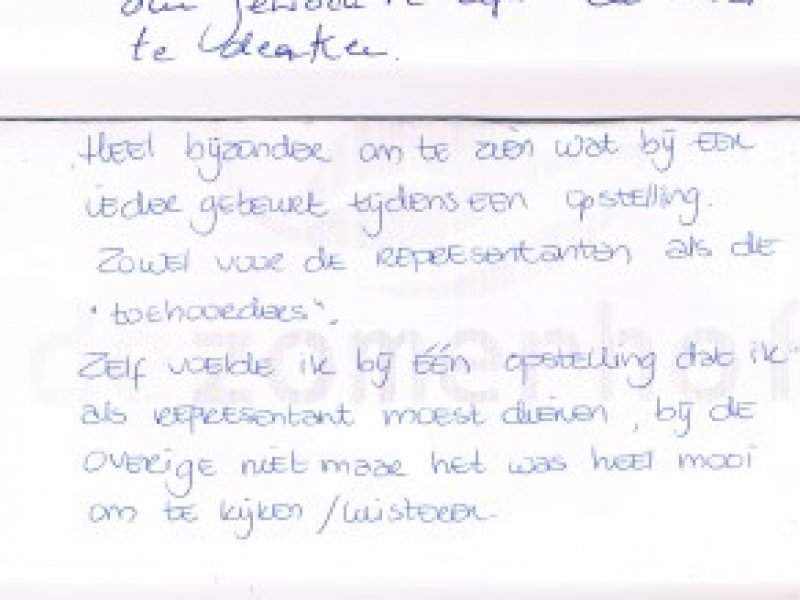 te denken.
Heel bijzonder om te zien wat bij een
ieder gebeurt tijdens een opstelling.
Zowel voor de representanten als de
"toehoorders".
Zelf voelde ik bij één opstelling dat ik
als representant moest dienen, bij de
overige niet maar het was heel mooi
om te kijken /luisteren.
de zomerhof